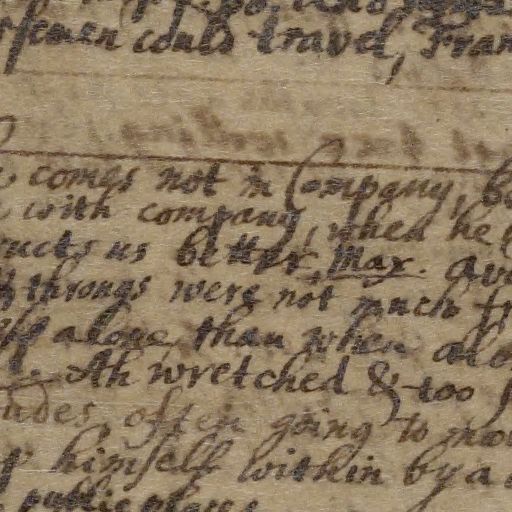 rsemen could travel, Fran
comes not in Company, be
with company, when he
ructs us better, Max. av
throngs were not much fr
alone, than when alo
Ah wretched & too
udes, often going to mo
himself within by a
public places